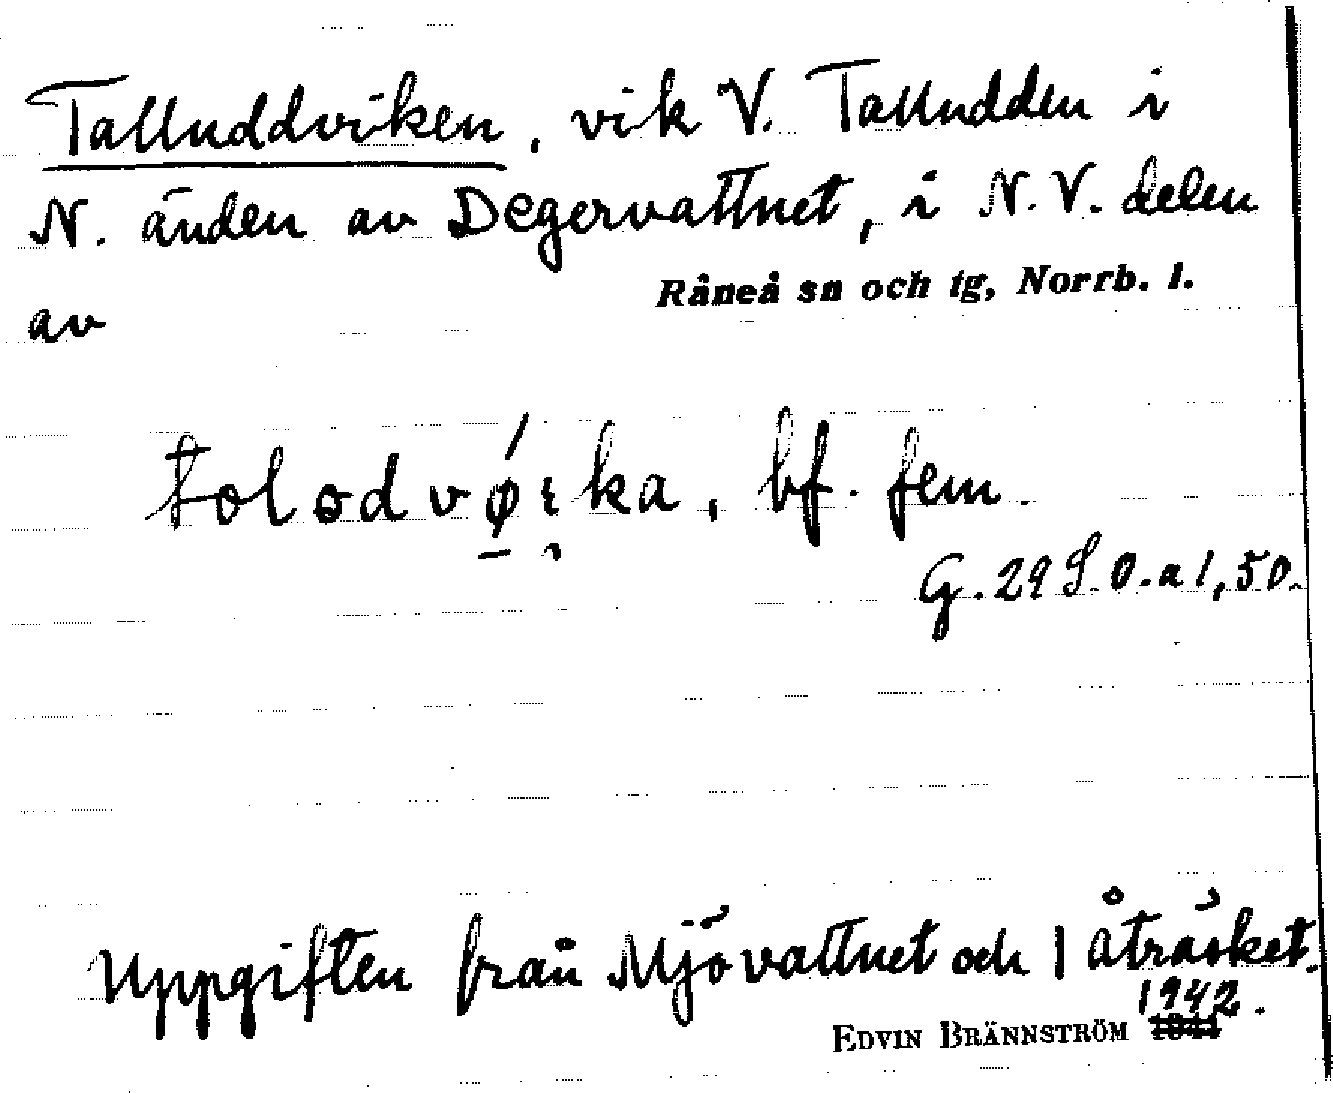 Talluddviken, vik V. Talludden i
N. änden av Degervattnet, i N.V. delen
av Råneå sn och tg, Norrb. l.
tolodvǿıka, bf. fem.
G. 29 S. 0. a 1,50.
Uppgiften från Mjövattnet och Råträsket.
EDVIN BRÄNNSTRÖM 1941 1942.